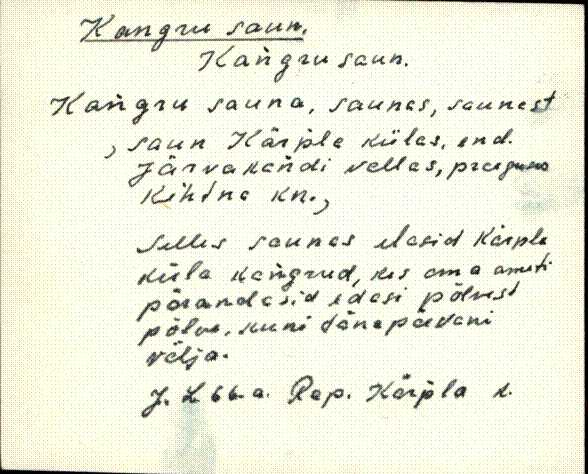 Kangru saun.
Kaṅgru saun.
Kaṅgru sauna, saunas, saunast
, saun Kärpla külas, end.
Järvakaṅdi vallas, praeguses
Kihtna kn.,
Selles saunas elasid Kärpla
küla kaṅgrud, kes oma ameti
pärandasid edasi põlvest
põlve, kuni tänapäevani
välja.
J. L 66 a. Rap. Kärpla k.